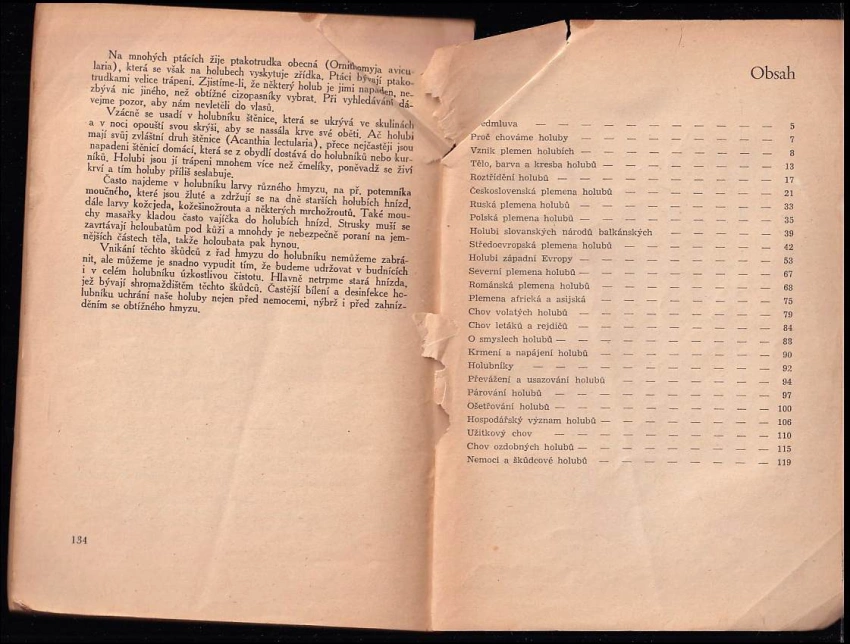 Na mnohých ptácích žije ptakotrudka obecná (Ornithomyja avicu-
laria), která se však na holubech vyskytuje zřídka. Ptáci bývají ptako-
trudkami velice trápeni. Zjistíme-li, že některý holub je jimi napaden, ne-
zbývá nic jiného, než obtížné cizopasníky vybrat. Při vyhledávání dá-
vejme pozor, aby nám nevletěli do vlasů.
Vzácně se usadí v holubníku štěnice, která se ukrývá ve skulinách
a v noci opouští svou skrýši, aby se nassála krve své oběti. Ač holubi
mají svůj zvláštní druh štěnice (Acanthia lectularia), přece nejčastěji jsou
napadeni štěnicí domácí, která se z obydlí dostává do holubníků nebo kur-
níků. Holubi jsou jí trápeni mnohem více než čmelíky, poněvadž se živí
krví a tím holuby příliš seslabuje.
Často najdeme v holubníku larvy různého hmyzu, na př. potemníka
moučného, které jsou žluté a zdržují se na dně starších holubích hnízd,
dále larvy kožejeda, kožešinožrouta a některých mrchožroutů. Také mou-
chy masařky kladou často vajíčka do holubích hnízd. Strusky muší se
zavrtávají holoubatům pod kůži a mnohdy je nebezpečně poraní na jem-
nějších částech těla, takže holoubata pak hynou.
Vnikání těchto škůdců z řad hmyzu do holubníku nemůžeme zabrá-
nit, ale můžeme je snadno vypudit tím, že budeme udržovat v budnících
i v celém holubníku úzkostlivou čistotu. Hlavně netrpme stará hnízda,
jež bývají shromaždištěm těchto škůdců. Častější bílení a desinfekce ho-
lubníku uchrání naše holuby nejen před nemocemi, nýbrž i před zahníz-
děním se obtížného hmyzu.
134
Obsah
edmluva — — — — — — — — 5
Proč chováme holuby — — — — — — — 7
Vznik plemen holubích — — — — — — — 8
Tělo, barva a kresba holubů — — — — — — 13
Roztřídění holubů — — — — — — — 17
Československá plemena holubů — — — — — — 21
Ruská plemena holubů — — — — — — — 33
Polská plemena holubů — — — — — — — 35
Holubi slovanských národů balkánských — — — — 39
Středoevropská plemena holubů — — — — — — 42
Holubi západní Evropy — — — — — — — 53
Severní plemena holubů — — — — — — — 67
Románská plemena holubů — — — — — — 68
Plemena africká a asijská — — — — — — 75
Chov volatých holubů — — — — — — — 79
Chov letáků a rejdičů — — — — — — — 84
O smyslech holubů — — — — — — — 88
Krmení a napájení holubů — — — — — — 90
Holubníky — — — — — — — — 92
Převážení a usazování holubů — — — — — 94
Párování holubů — — — — — — — 97
Ošetřování holubů — — — — — — — 100
Hospodářský význam holubů — — — — — — 106
Užitkový chov — — — — — — — 110
Chov ozdobných holubů — — — — — — — 115
Nemoci a škůdcové holubů — — — — — — 119